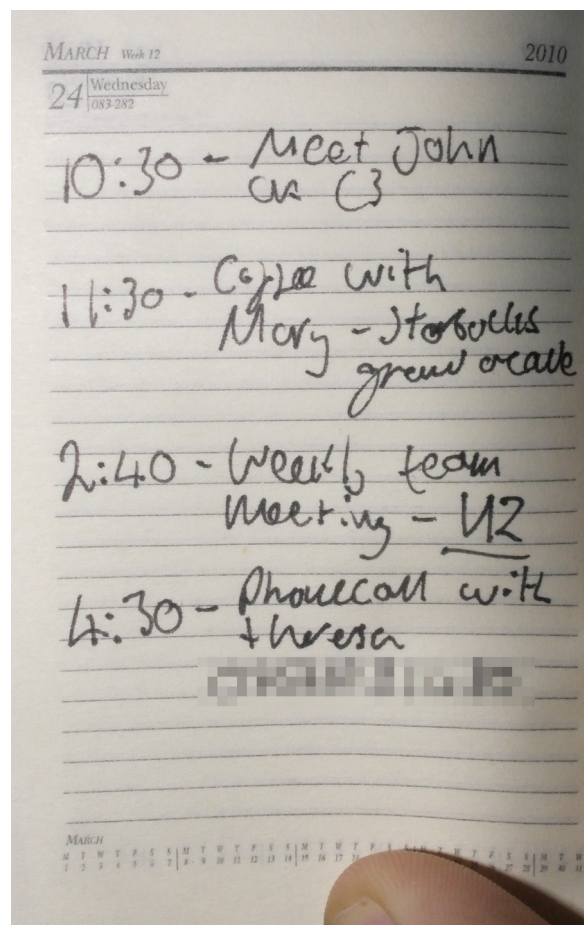 MARCH Week 12 2010
24 Wednesday
083-282
10:30 - Meet John
C3
11:30 - Coffee with
Mary - Starbucks
2:40 - Weekly team
meeting - U2
4:30 - Phonecall with
theresa
MARCH
M T W T F S S M T W T F S S M T W T F S S M T W
1 2 3 4 5 6 7 8 9 10 11 12 13 14 15 16 17 18 27 28 29 30 31